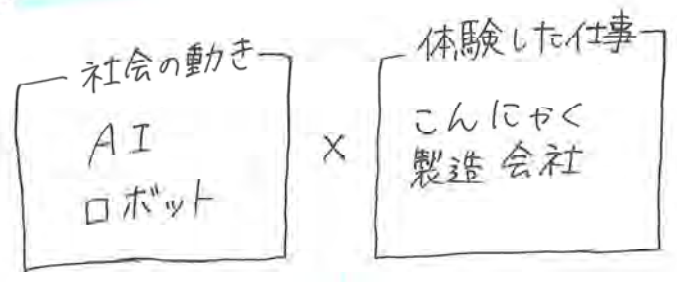 社会の動き
AI
ロボット
×
体験した仕事
こんにゃく
製造会社